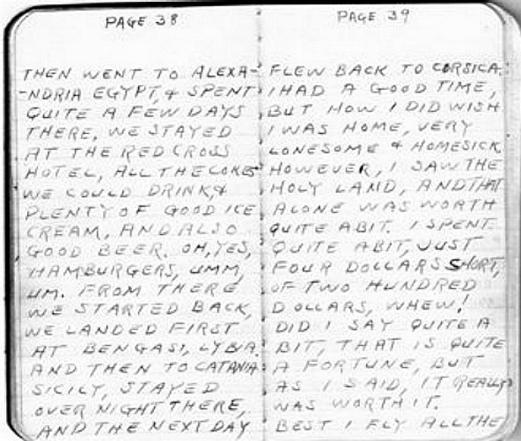 PAGE 38
THEN WENT TO ALEXA-
-NDRIA EGYPT, & SPENT
QUITE A FEW DAYS
THERE, WE STAYED
AT THE RED CROSS
HOTEL, ALL THE COKES
WE COULD DRINK, &
PLENTY OF GOOD ICE
CREAM, AND ALSO
GOOD BEER. OH, YES,
HAMBURGERS, UMM,
UM. FROM THERE
WE STARTED BACK,
WE LANDED FIRST
AT BENGASI, LYBIA.
AND THEN TO CATANIA
SICILY, STAYED
OVER NIGHT THERE,
AND THE NEXT DAY
PAGE 39
FLEW BACK TO CORSICA.
I HAD A GOOD TIME,
BUT HOW I DID WISH
I WAS HOME, VERY
LONESOME & HOMESICK
HOWEVER, I SAW THE
HOLY LAND, AND THAT
ALONE WAS WORTH
QUITE ABIT. I SPENT
QUITE ABIT, JUST
FOUR DOLLARS SHORT,
OF TWO HUNDRED
DOLLARS, WHEW!
DID I SAY QUITE A
BIT, THAT IS QUITE
A FORTUNE, BUT
AS I SAID, IT REALLY
WAS WORTH IT.
BEST I FLY ALL THE